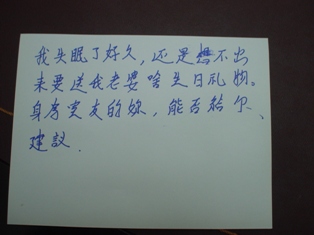 我失眠了好久，还是想不出
来要送我老婆啥生日礼物。
身为室友的妳，能否给点
建议.